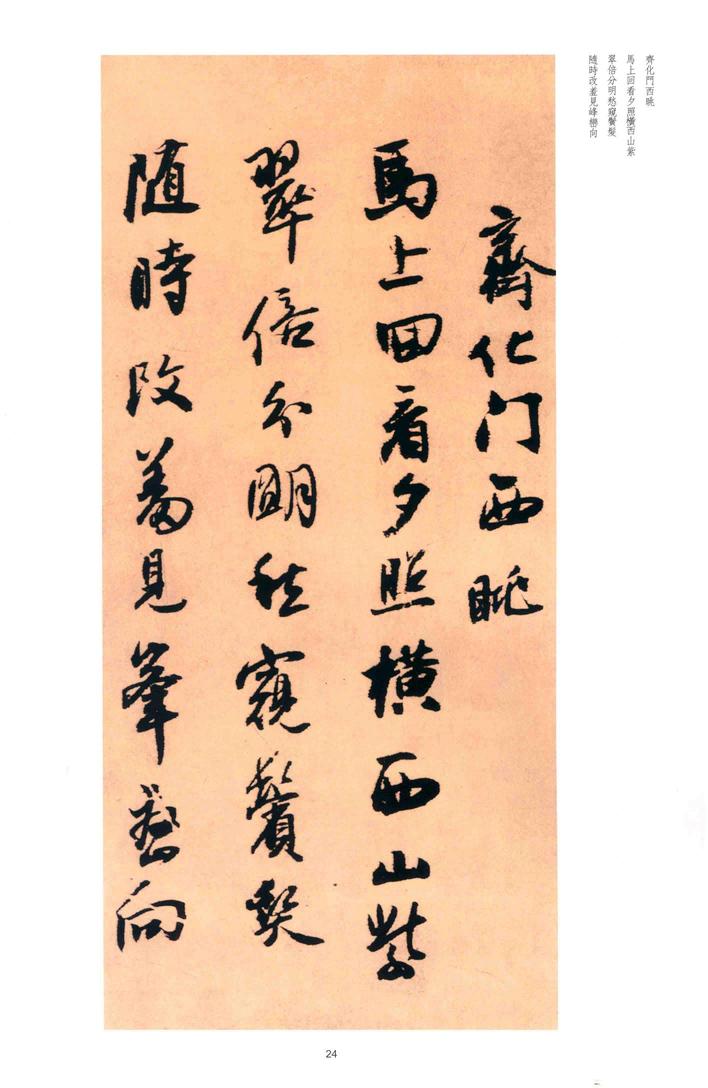 齊化門西眺
馬上回看夕照橫西山紫
翠倍分明愁窺鬢髮
隨時改羞見峰巒向
齊化门西眺
馬上回看夕照橫西山紫
翠倍分明愁窺鬢髮
随時改羞見峯巒向
24